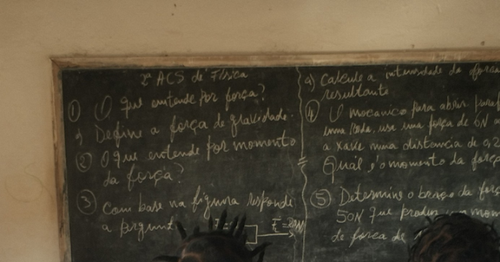 2ª ACS de Física
① O que entende por força?
a) Defina a força de gravidade.
② O que entende por momento
da força?
③ Com base na figura responde
a pergunt
a) Calcule a intensidade da força
resultante
④ O mecanico para abrir
uma usa uma força de 6N
a xave numa distancia de 0,2
Qual é o momento da força
⑤ Determine o braço da for
50N que produz mom
de força de